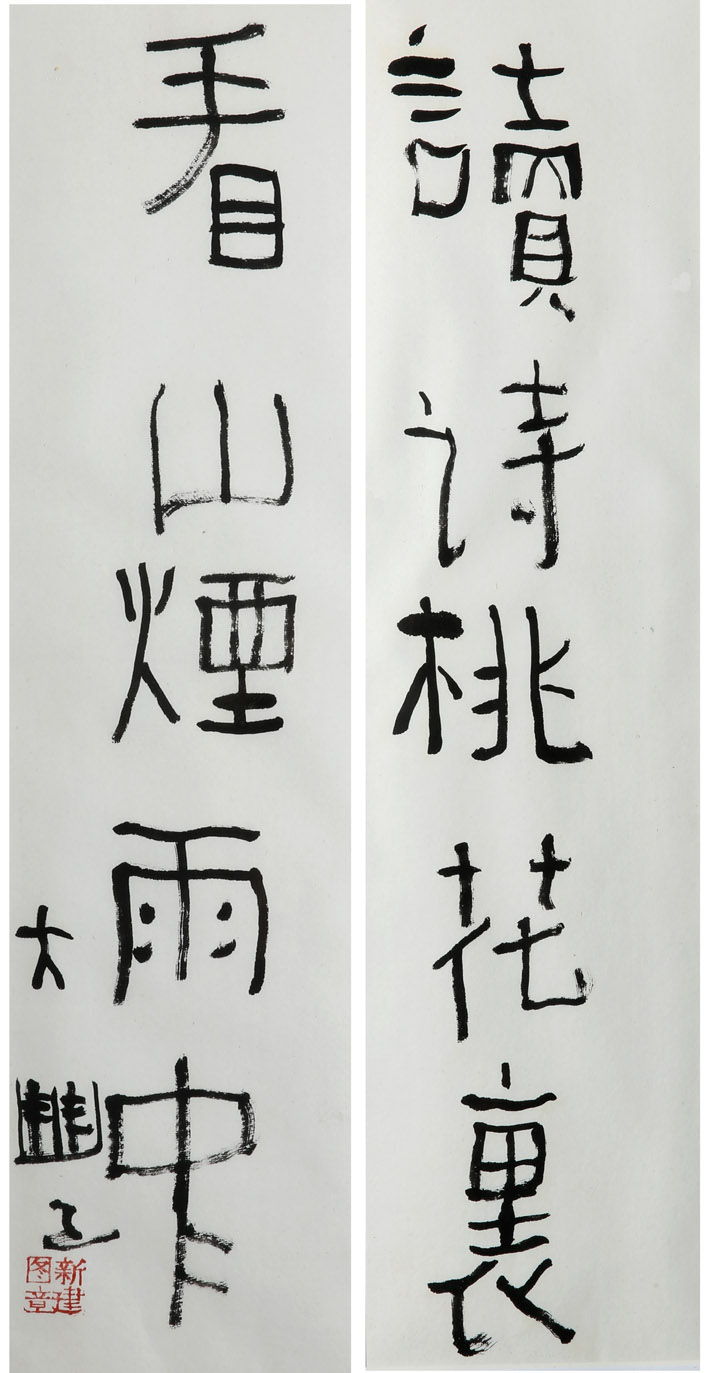 讀诗桃花裏
看山煙雨中
大豐
新建图章